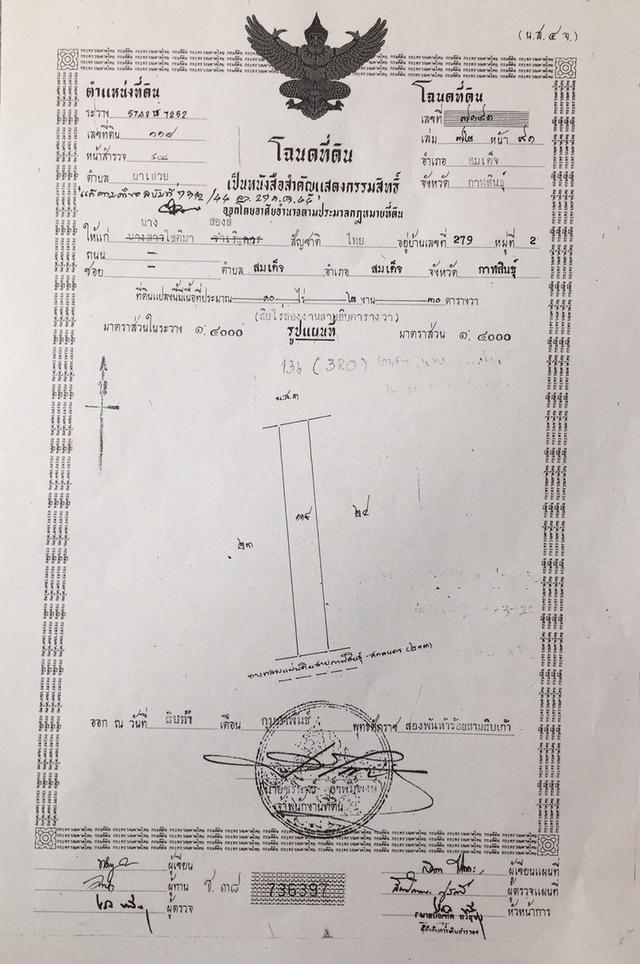 (น.ส.๔ จ.)
ตำแหน่งที่ดิน
ระวาง 5742 III 7252
เลขที่ดิน ๑๑๕
หน้าสำรวจ
ตำบล ผาเสวย
โฉนดที่ดิน
เลขที่ ๗๑๕๑
เล่ม ๗๒ หน้า ๕๑
อำเภอ สมเด็จ
จังหวัด กาฬสินธุ์
โฉนดที่ดิน
เป็นหนังสือสำคัญแสดงกรรมสิทธิ์
ออกโดยอาศัยอำนาจตามประมวลกฎหมายที่ดิน
นาง
ให้แก่ นางสาวโชติมา สัญชาติ ไทย อยู่บ้านเลขที่ 279 หมู่ที่ 2
ถนน —
ซอย — ตำบล สมเด็จ อำเภอ สมเด็จ จังหวัด กาฬสินธุ์
ที่ดินแปลงนี้มีเนื้อที่ประมาณ ๑๐ ไร่ ๒ งาน ๓๐ ตารางวา
(สิบไร่สองงานสามสิบตารางวา)
มาตราส่วนในระวาง ๑:๔๐๐๐ รูปแผนที่ มาตราส่วน ๑:๔๐๐๐
136 (380)
น.ส.๓
๑๑๕
๒๔
๒๓
ทางหลวงแผ่นดินสายกาฬสินธุ์-สกลนคร (๒๑๓)
ออก ณ วันที่ สิบห้า เดือน กุมภาพันธ์ พุทธศักราช สองพันห้าร้อยสามสิบเก้า
เจ้าพนักงานที่ดิน
ผู้เขียน
ผู้ทาน
ผู้ตรวจ
ช. ๓๘
736397
ผู้เขียนแผนที่
ผู้ตรวจแผนที่
หัวหน้าการ